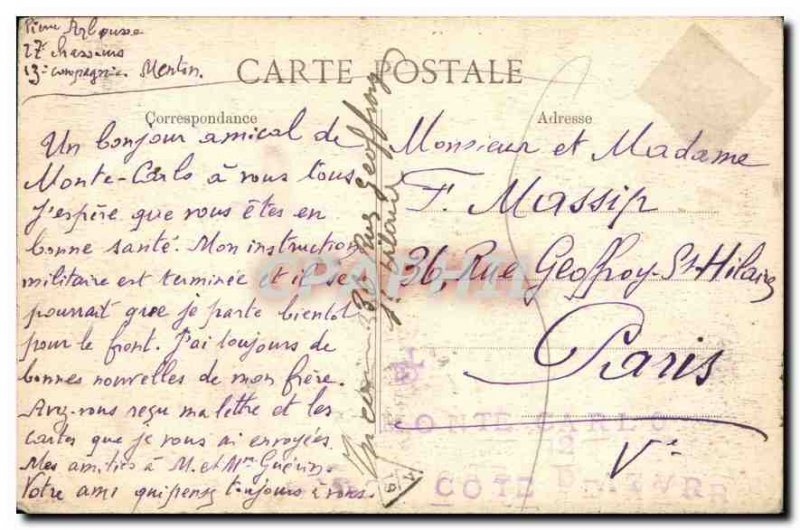 Pierre Arbousse
27e chasseurs
13e compagnie. Menton.
CARTE POSTALE
Correspondance
Adresse
Un bonjour amical de
Monte-Carlo à vous tous.
J'espère que vous êtes en
bonne santé. Mon instruction
militaire est terminée et il se
pourrait que je parte bientôt
pour le front. J'ai toujours de
bonnes nouvelles de mon frère.
Avez-vous reçu ma lettre et les
cartes que je vous ai envoyées
Mes amitiés à M. et Mme Guérin.
Votre ami qui pense toujours à vous.
36 Rue Geoffroy
St Hilaire
Monsieur et Madame
F. Massip
36, Rue Geoffroy-St-Hilaire
Paris
Ve
MONTE CARLO
COTE D